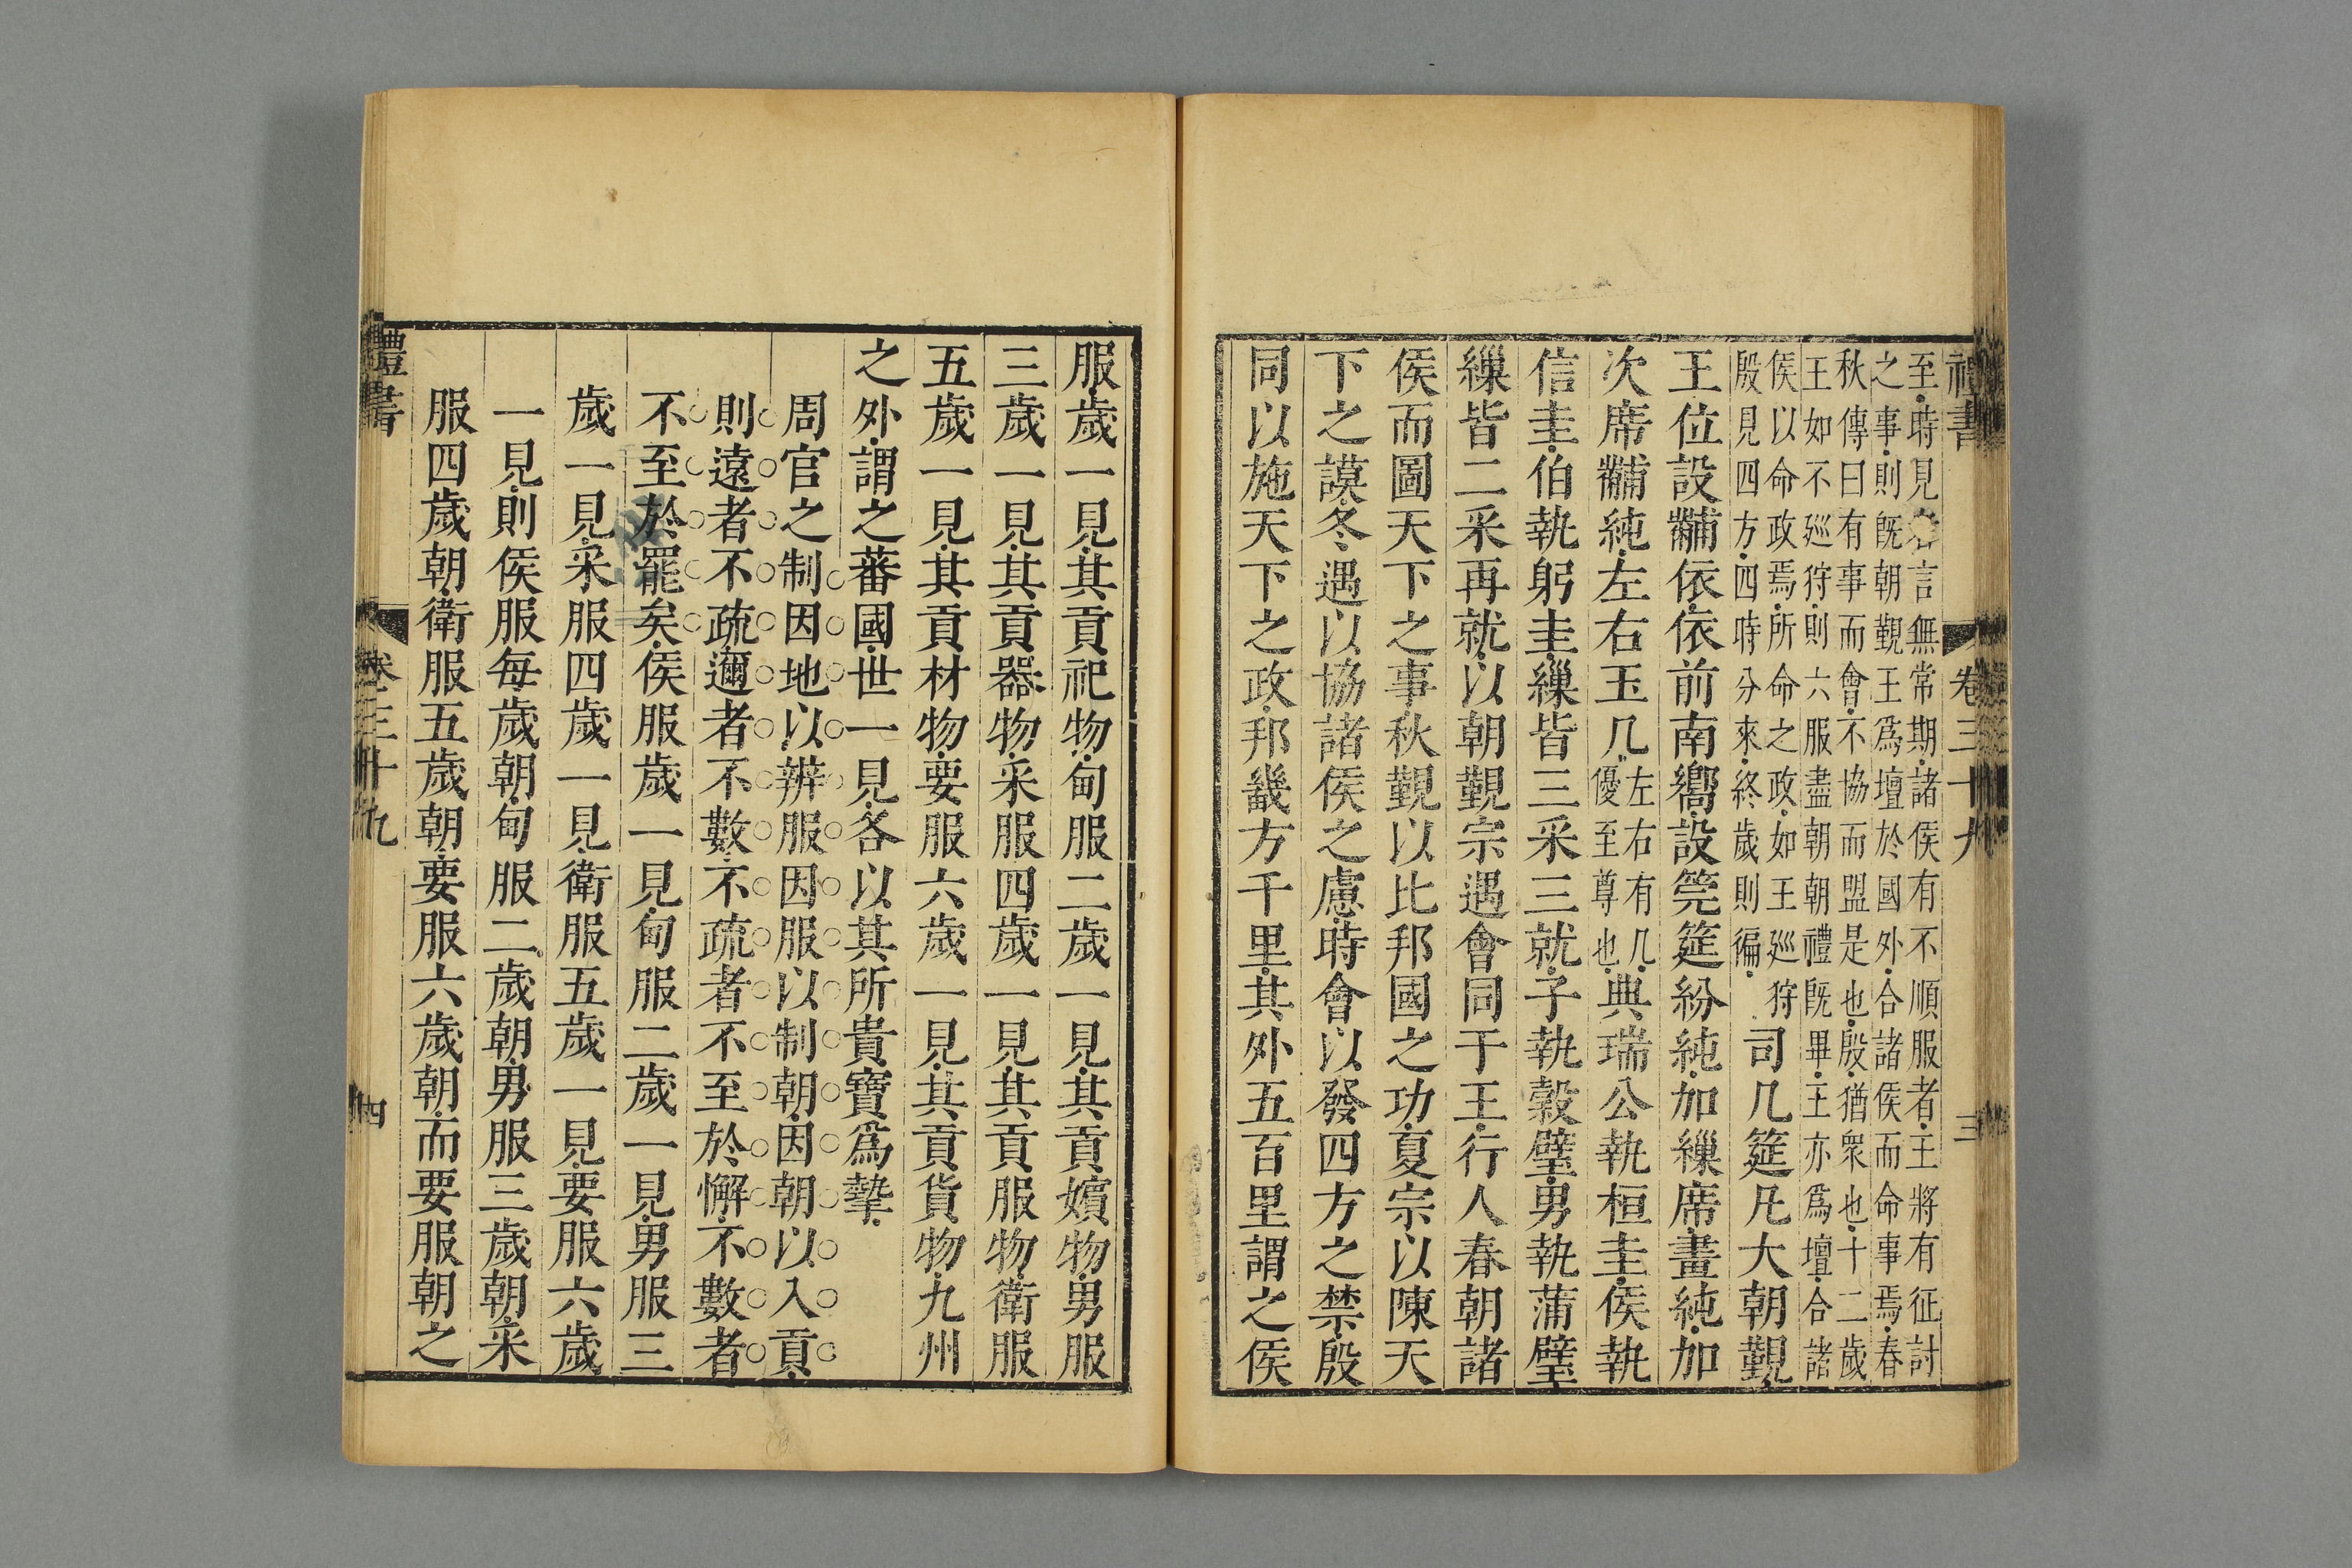 禮書
卷三十九
三
至時見者言無常期諸侯有不順服者王將有征討
之事則既朝覲王爲壇於國外合諸侯而命事焉春
秋傳曰有事而會不協而盟是也殷猶衆也十二歲
王如不廵狩則六服盡朝朝禮既畢王亦爲壇合諸
侯以命政焉所命之政如王廵狩
殷見四方四時分來終歲則徧
司几筵凡大朝覲
王位設黼依依前南嚮設筦筵紛純加繅席畫純加
次席黼純左右玉几
左右有几
優至尊也
典瑞公執桓圭侯執
信圭伯執躬圭繅皆三采三就子執榖璧男執蒲璧
繅皆二采再就以朝覲宗遇會同于王行人春朝諸
侯而圖天下之事秋覲以比邦國之功夏宗以陳天
下之謨冬遇以協諸侯之慮時會以發四方之禁殷
同以施天下之政邦畿方千里其外五百里謂之侯
服歲一見其貢祀物甸服二歲一見其貢嬪物男服
三歲一見其貢器物采服四歲一見其貢服物衛服
五歲一見其貢材物要服六歲一見其貢貨物九州
之外謂之蕃國世一見各以其所貴寶爲摯
周官之制因地以辨服因服以制朝因朝以入貢
則遠者不疏邇者不數不疏者不至於懈不數者
不至於罷矣侯服歲一見甸服二歲一見男服三
歲一見采服四歲一見衛服五歲一見要服六歲
一見則侯服每歲朝甸服二歲朝男服三歲朝采
服四歲朝衛服五歲朝要服六歲朝而要服朝之
禮書
卷三十九
四